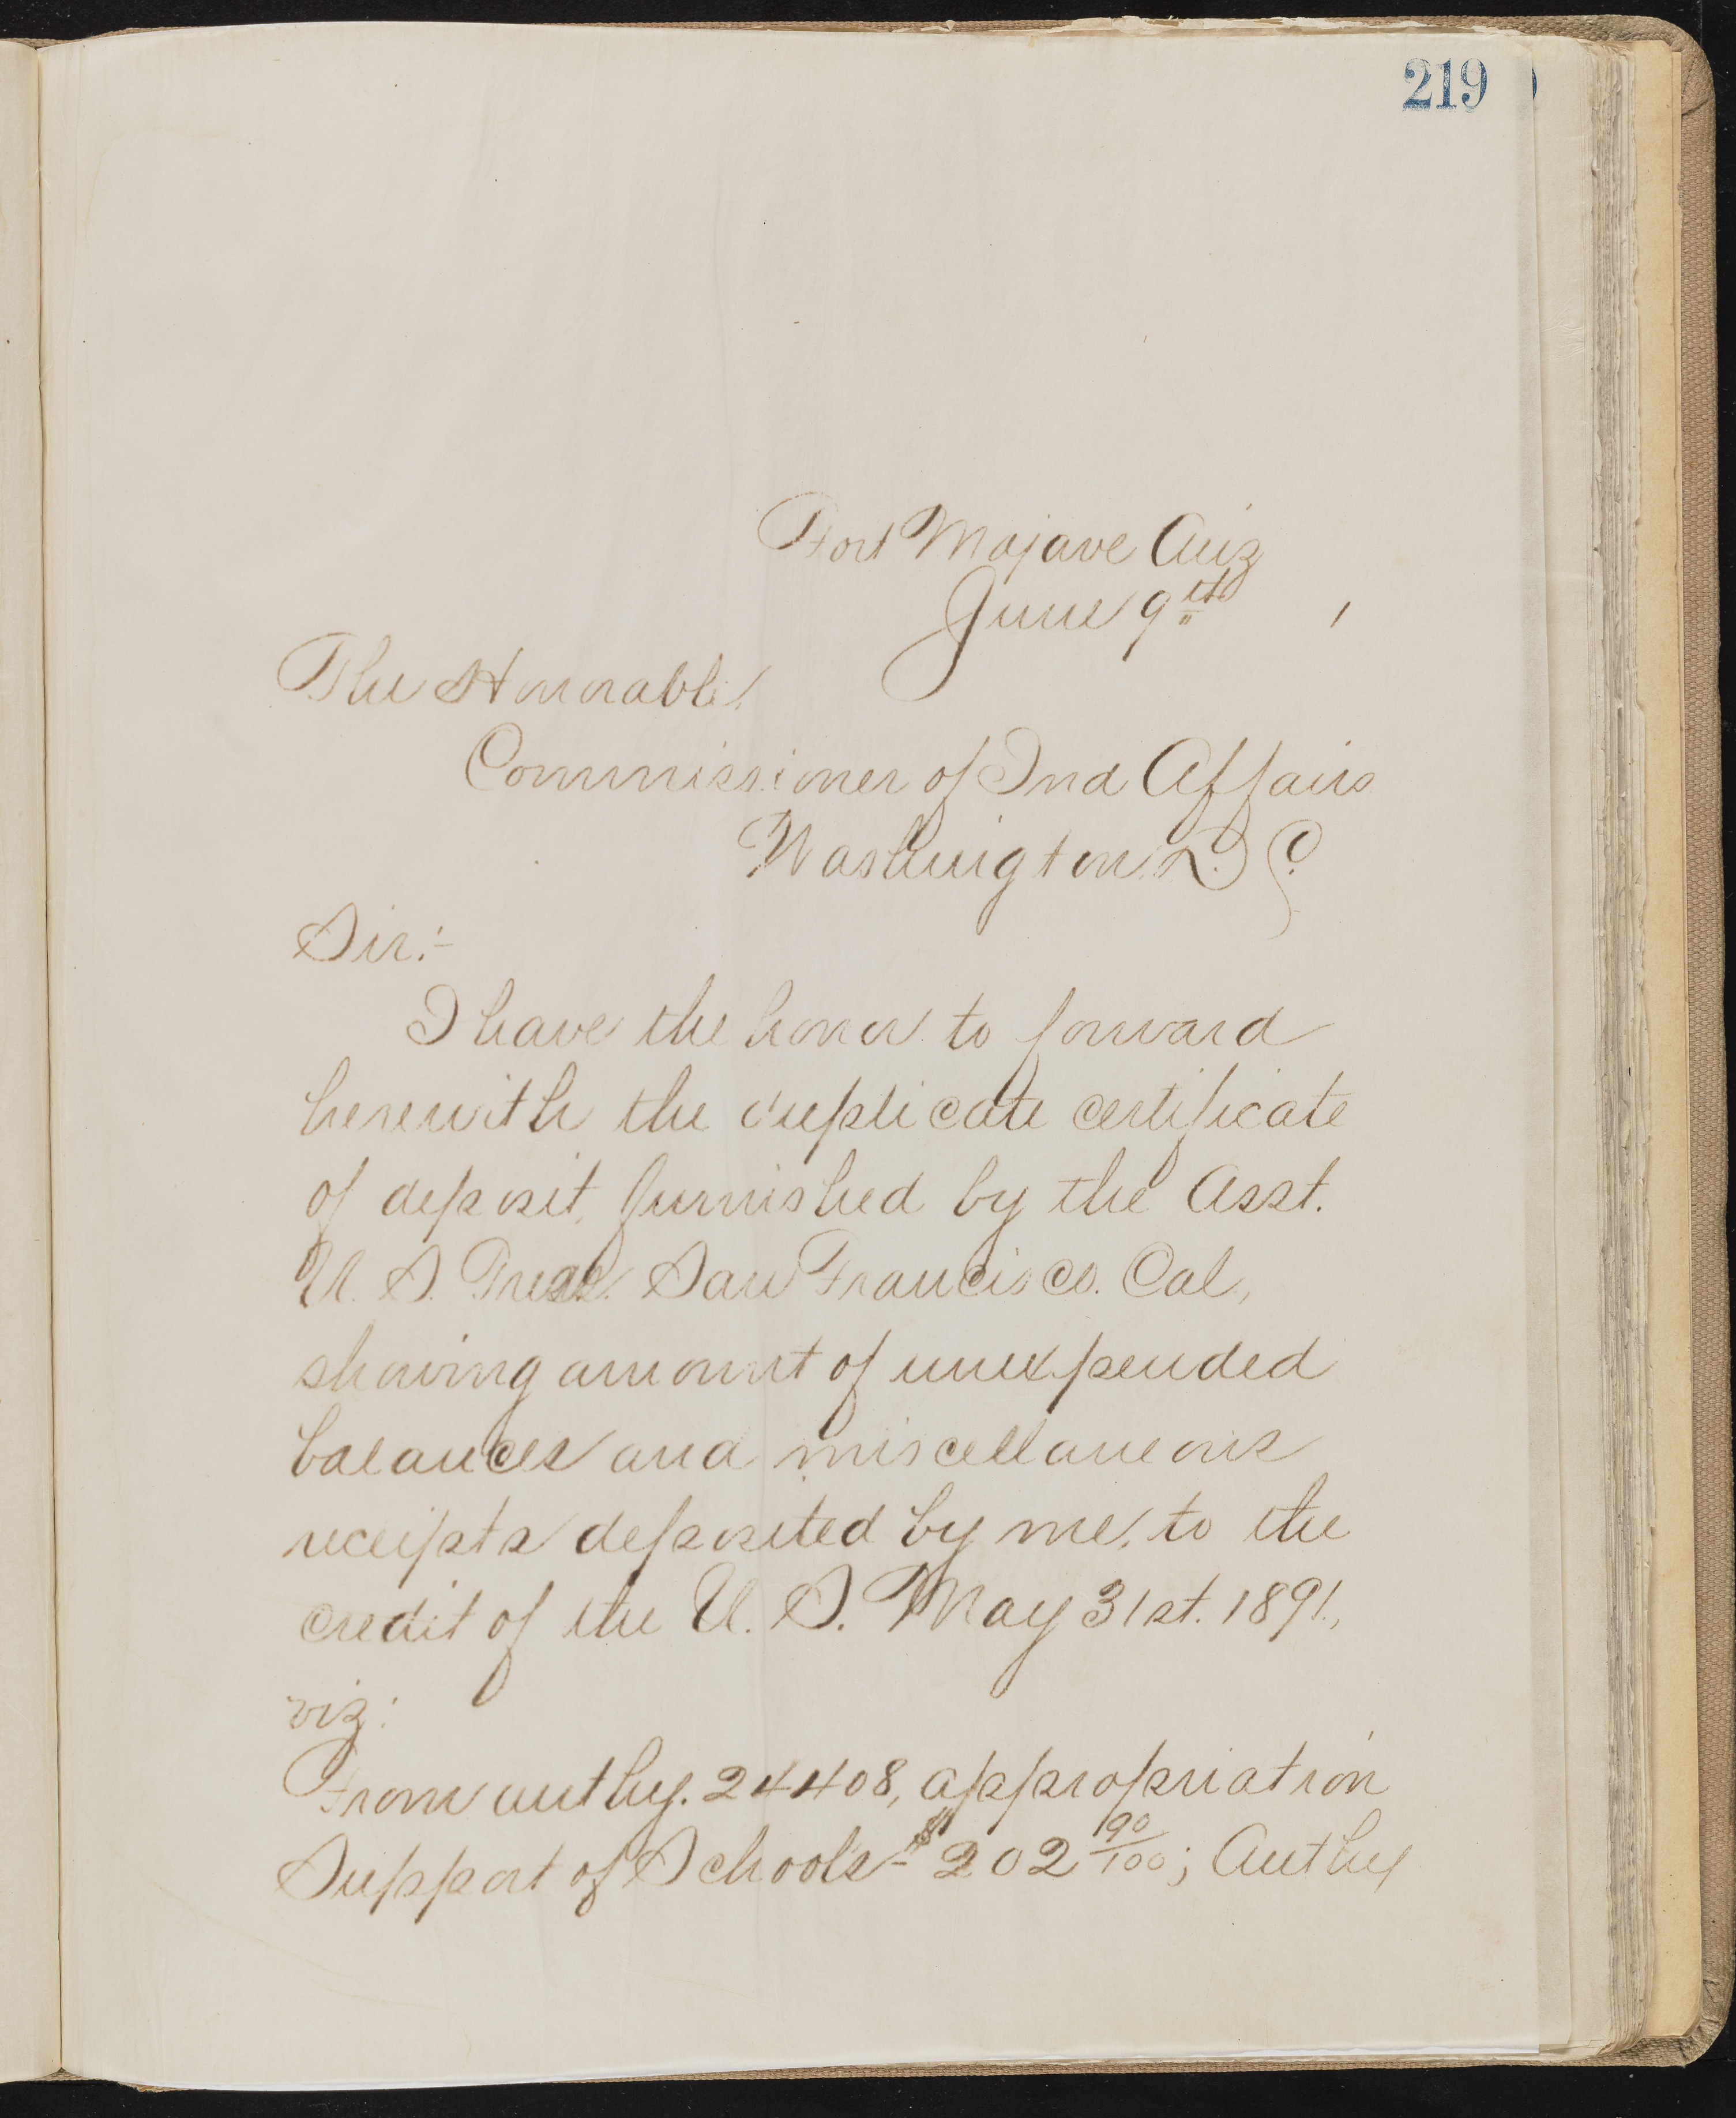 219
Fort Mojave Ariz
June 9th 1
The Honorable
Commissioner of Ind Affairs
Washington D. C.
Sir:-
I have the honor to forward
herewith the duplicate certificate
of deposit, furnished by the Asst.
U. S. Treas. San Francisco. Cal,
showing amount of unexpended
balances and miscellaneous
receipts deposited by me, to the
credit of the U. S. May 31st. 1891,
viz:
From authy. 24408, appropriation
Support of Schools - $202 90/100; Authy